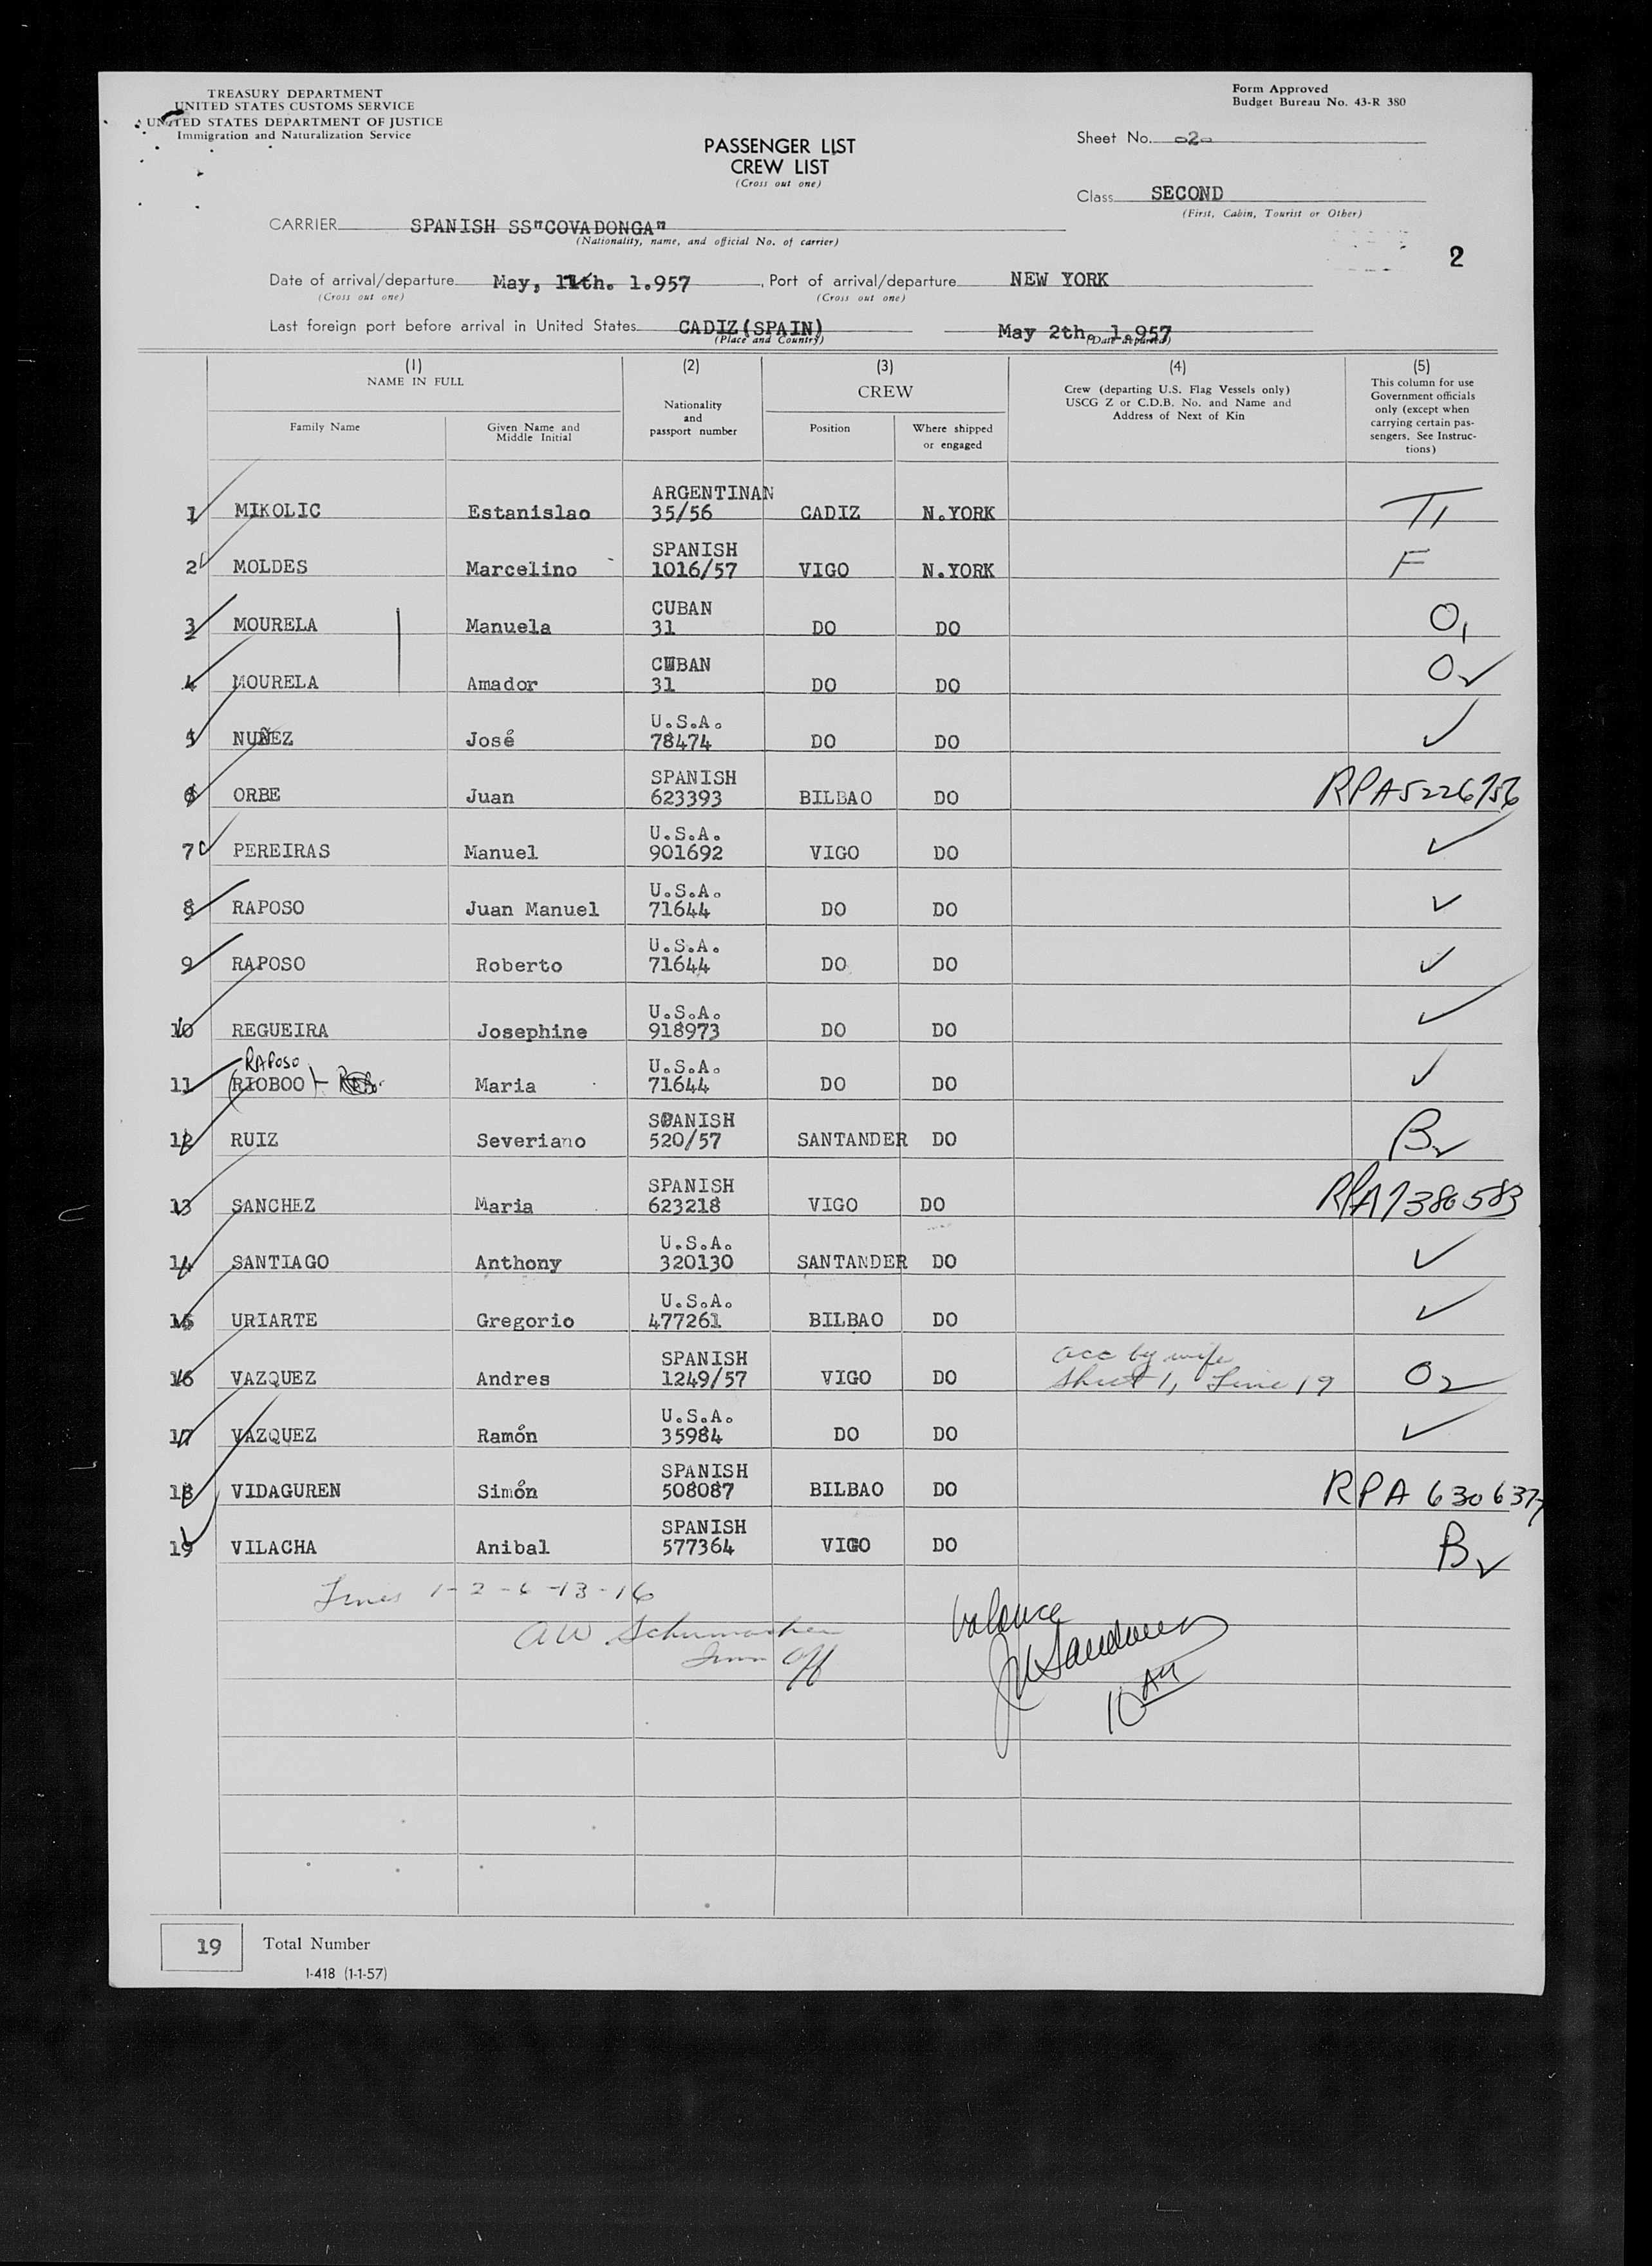 TREASURY DEPARTMENT
UNITED STATES CUSTOMS SERVICE
UNITED STATES DEPARTMENT OF JUSTICE
Immigration and Naturalization Service
Form Approved
Budget Bureau No. 43-R 380
PASSENGER LIST
CREW LIST
(Cross out one)
Sheet No. -2-
Class SECOND
(First, Cabin, Tourist or Other)
CARRIER SPANISH SS"COVADONGA"
(Nationality, name, and official No. of carrier)
2
Date of arrival/departure May, 11th. 1.957, Port of arrival/departure NEW YORK
(Cross out one) (Cross out one)
Last foreign port before arrival in United States CADIZ(SPAIN) May 2th. 1.957
(Place and Country) (Date departed)
(1) (2) (3) (4) (5)
NAME IN FULL
Family Name
Given Name and
Middle Initial
Nationality
and
passport number
CREW
Position
Where shipped
or engaged
Crew (departing U.S. Flag Vessels only)
USCG Z or C.D.B. No. and Name and
Address of Next of Kin
This column for use
Government officials
only (except when
carrying certain pas-
sengers. See Instruc-
tions)
ARGENTINAN
1 MIKOLIC Estanislao 35/56 CADIZ N.YORK
SPANISH
2 MOLDES Marcelino 1016/57 VIGO N.YORK F
CUBAN
3 MOURELA Manuela 31 DO DO O1
CUBAN
4 MOURELA Amador 31 DO DO O
U.S.A.
5 NUÑEZ José 78474 DO DO
SPANISH
6 ORBE Juan 623393 BILBAO DO RPA5226756
U.S.A.
7 PEREIRAS Manuel 901692 VIGO DO
U.S.A.
8 RAPOSO Juan Manuel 71644 DO DO
U.S.A.
9 RAPOSO Roberto 71644 DO DO
U.S.A.
10 REGUEIRA Josephine 918973 DO DO
RAPOSO U.S.A.
11 (RIOBOO) Maria 71644 DO DO
SPANISH
12 RUIZ Severiano 520/57 SANTANDER DO B
SPANISH
13 SANCHEZ Maria 623218 VIGO DO RPA7386583
U.S.A.
14 SANTIAGO Anthony 320130 SANTANDER DO
U.S.A.
15 URIARTE Gregorio 477261 BILBAO DO
SPANISH acc by wife
16 VAZQUEZ Andres 1249/57 VIGO DO Sheet 1, Line 19 O2
U.S.A.
17 VAZQUEZ Ramón 35984 DO DO
SPANISH
18 VIDAGUREN Simón 508087 BILBAO DO RPA 6306377
SPANISH
19 VILACHA Anibal 577364 VIGO DO B
Lines 1-2-6-13-16
AW Schumacher
Imm Off
balance
10 AM
19 Total Number
I-418 (1-1-57)